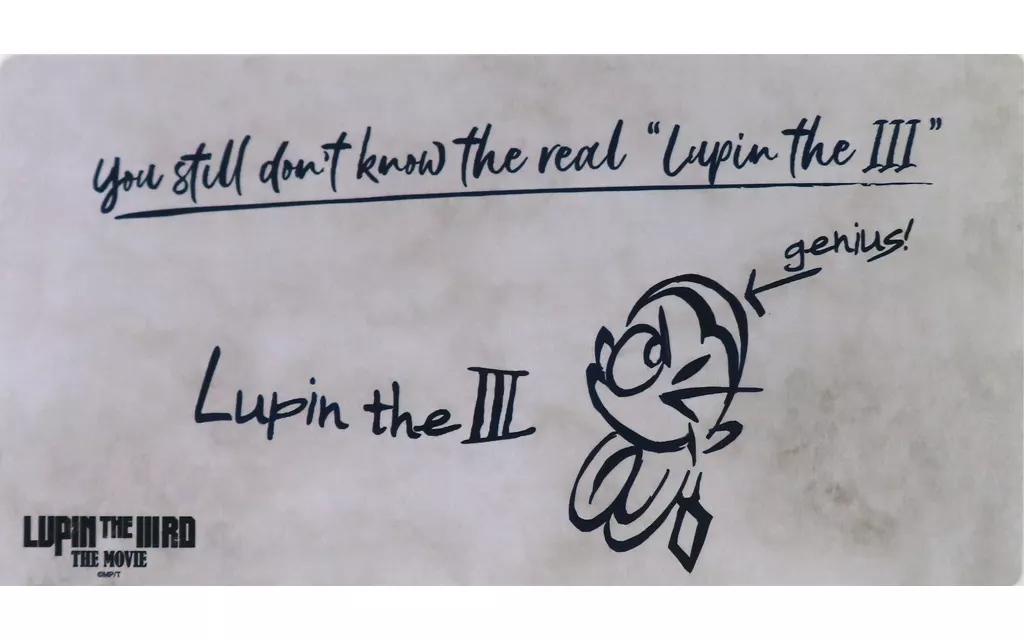 You still don't know the real “Lupin the III”
genius!
Lupin the III
LUPIN THE IIIRD
THE MOVIE
©MP/T